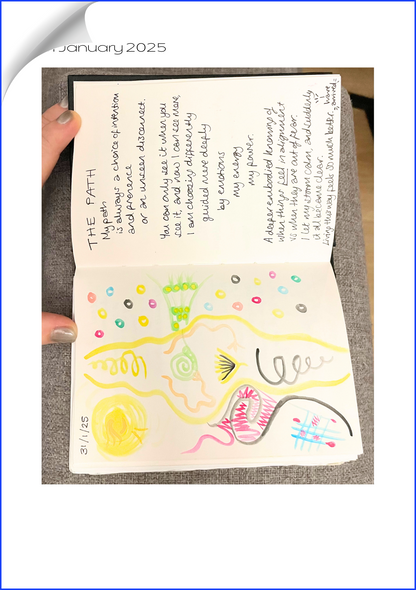 January 2025
THE PATH
My path
is always a choice of intention
and presence
or an unseen disconnect.
You can only see it when you
see it, and now I can see more,
I am choosing differently
guided more deeply
by emotions
my energy
my power.
A deeper embodied knowing of
when things feel in alignment
vs when they are out of
I let my storm calm, and suddenly
it all became clear.
living this way feels so much better. I have
arrived.
31/1/25